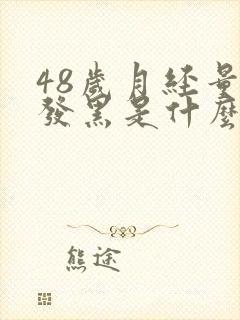 48歲月经量
發黑是什麼
熊途